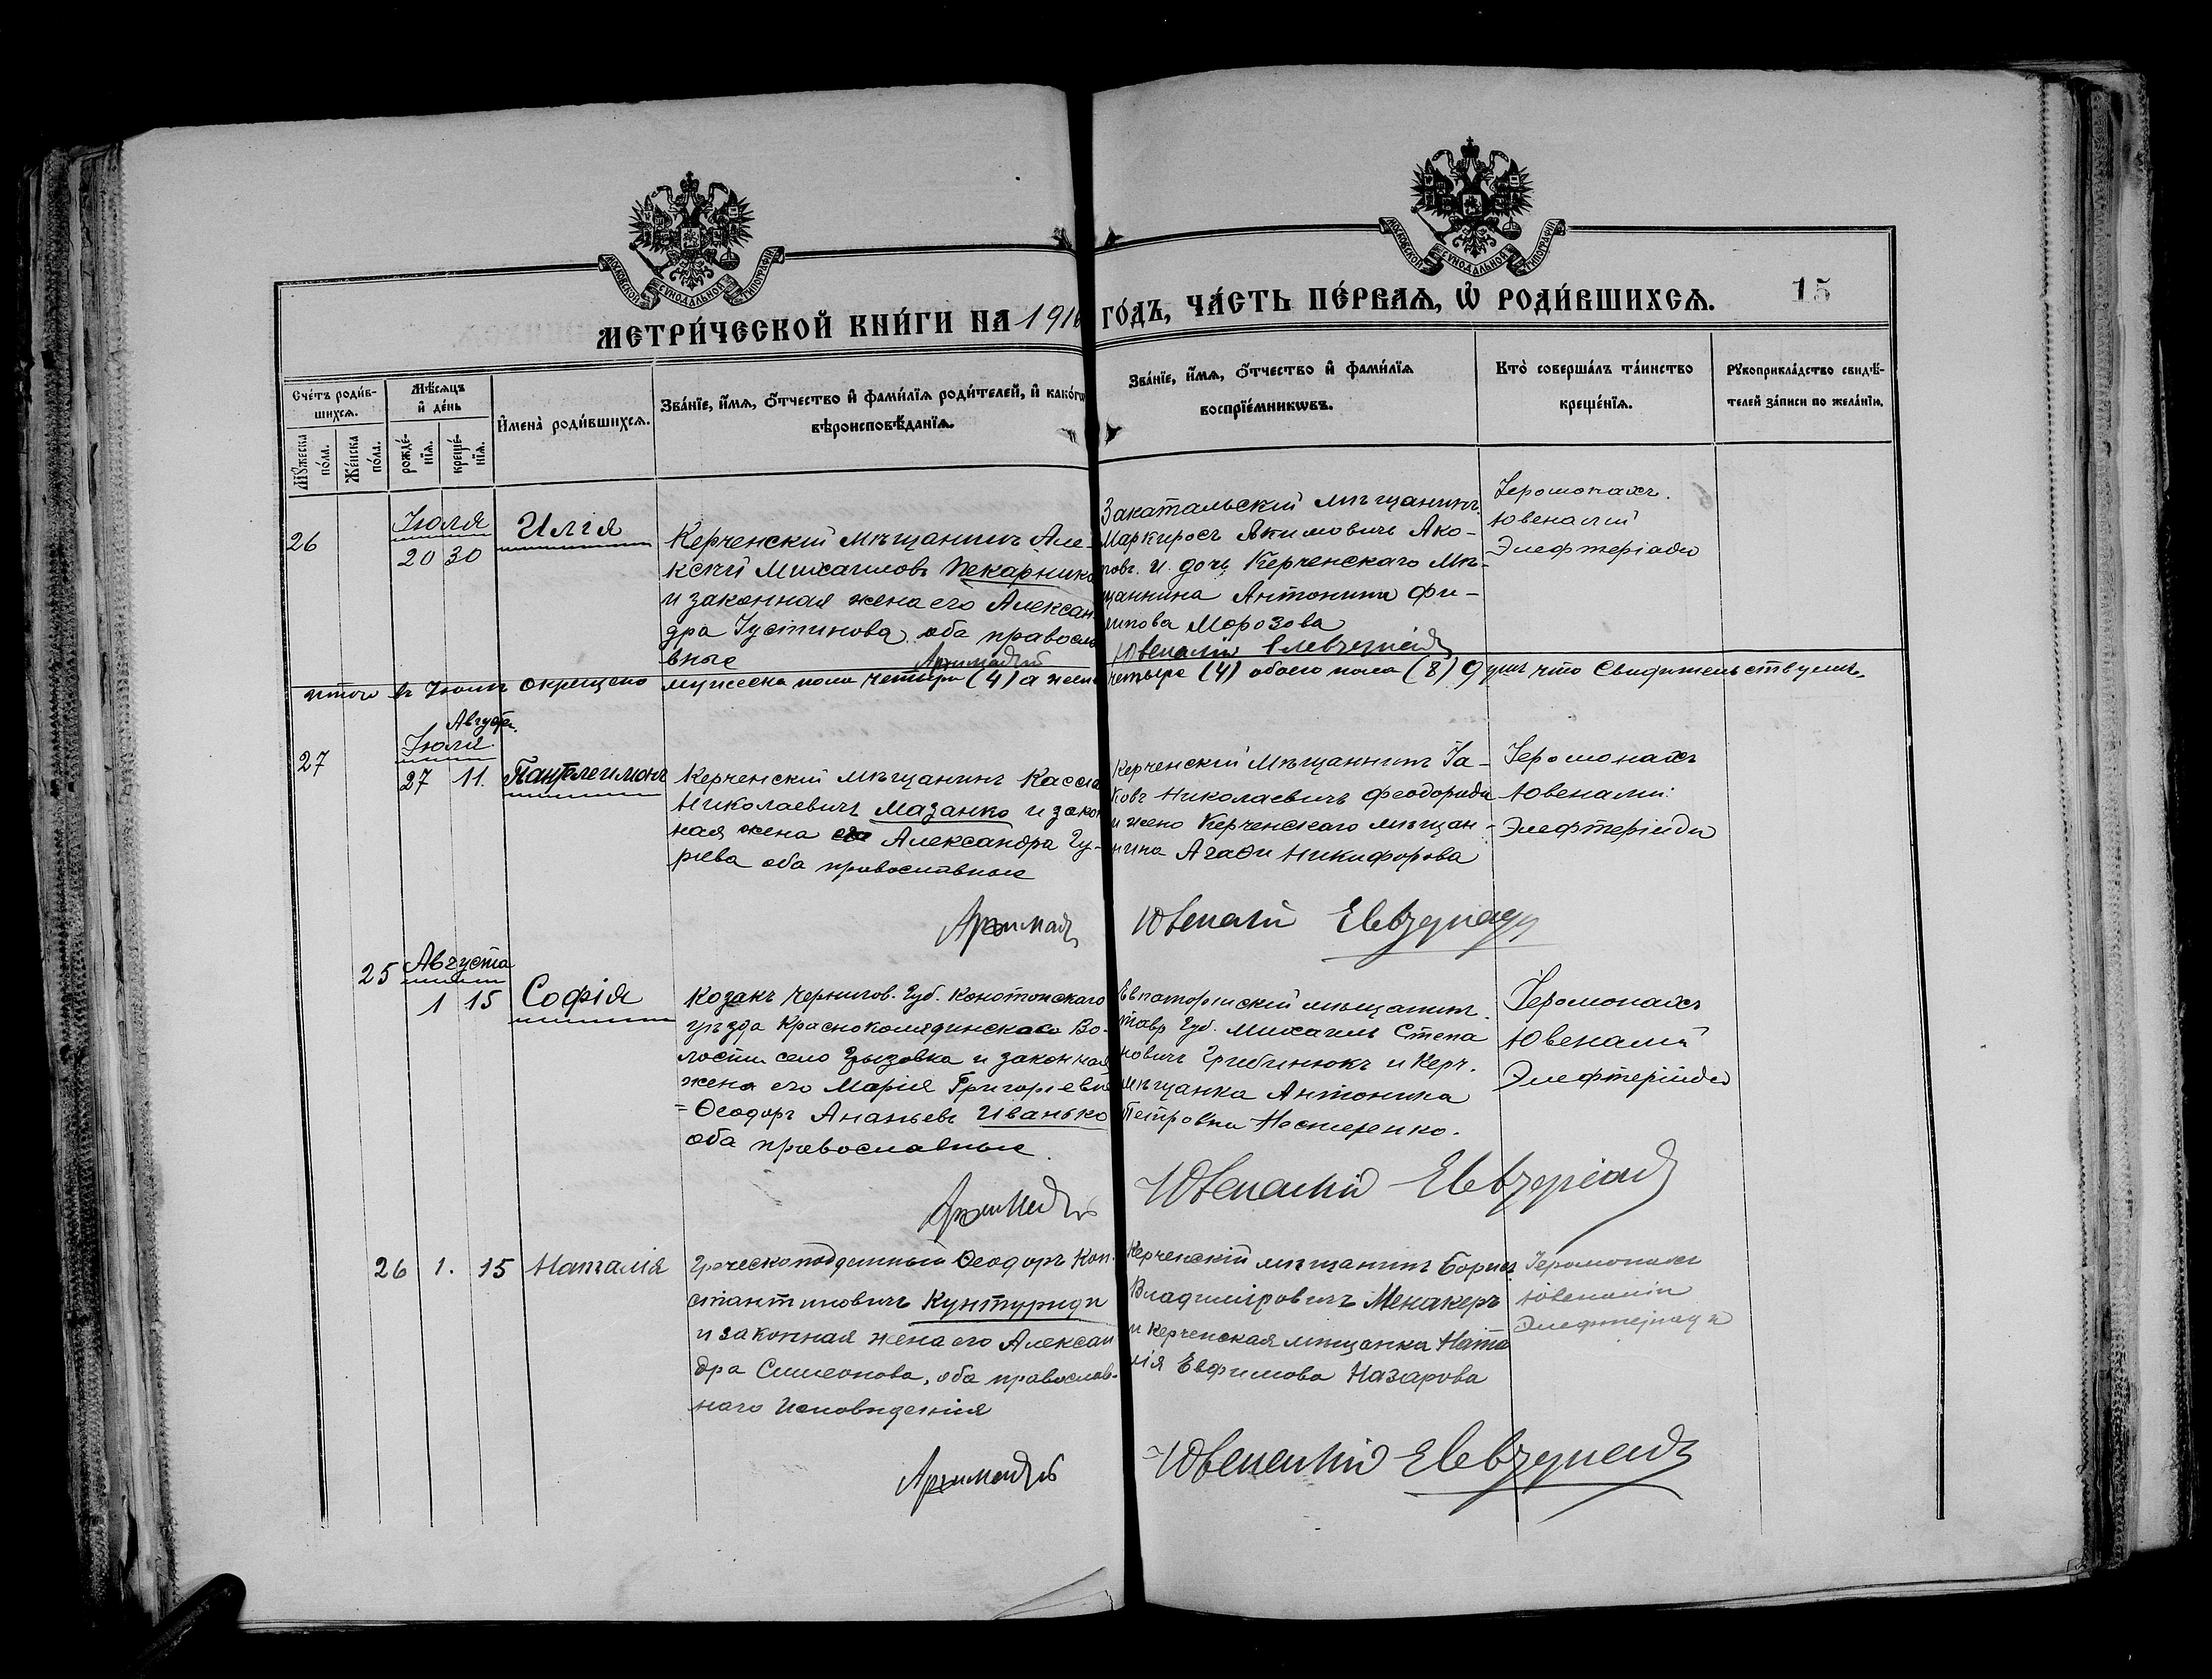 МОСКОВСКОЙ СѴНОДАЛЬНОЙ ТИПОГРАФІИ
МОСКОВСКОЙ СѴНОДАЛЬНОЙ ТИПОГРАФІИ
15
МЕТРИ́ЧЕСКОЙ КНИ́ГИ НА 1916 ГО́ДЪ, ЧА́СТЬ ПЕ́РВАѦ, Ѡ҆ РОДИ́ВШИХСѦ.
Сче́тъ роди́в-
шихсѧ.
Мꙋ́жеска по́ла.
Же́нска по́ла.
Мѣ́сѧцъ
и҆ де́нь
рожде́нїѧ.
креще́нїѧ.
И҆мена̀ роди́вшихсѧ.
Зва́нїе, и҆́мѧ, ѻ҆́тчество и҆ фами́лїѧ роди́телей, и҆ како́гѡ
вѣроисповѣ́данїѧ.
Зва́нїе, и҆́мѧ, ѻ҆́тчество и҆ фами́лїѧ
воспрїе́мникѡвъ.
Кто̀ соверша́лъ та́инство
креще́нїѧ.
Рꙋкоприкла́дство свидѣ́-
телей за́писи по жела́нїю.
26
Іюля
20 30
Илія
Керченскій мѣщанинъ Але-
ксѣй Михаиловъ Пекарнико
и законная жена его Алексан
дра Іустинова, оба правосла
вные
Закатальскій мѣщанинъ
Маркиросъ Якимовичъ Ако-
повъ. и дочь Керченскаго мѣ-
щанина Антонина Фи-
липова Морозова
Іеромонахъ
Ювеналій
Элефтеріади
Архимад
Ювеналій Елевзеріад
итого въ Іюлѣ окрещено мужеска пола четыре (4) а жен четыре (4) обоего пола (8) душъ что Свидѣтельствуемъ
27
Августа
Іюля
27 11.
Пантелеимонъ
Керченскій мѣщанинъ Касса
Николаевичъ Мазанко и закон
ная жена его Александра Гу-
рьева оба православные
Керченскій Мѣщанинъ Іа-
ковъ Николаевичъ Феодориди
и жена Керченскаго мѣщан-
нина Агафи Никифорова
Іеромонахъ
Ювеналій
Элефтеріади
Архимад
Ювеналій Елевзеріади
25
Августа
1 15
Софія
Козакъ Чернигов. Губ. Конотопскаго
уѣзда Красноколядинскаго Во-
лости село Грызовка и законная
жена его Марія Григорьевна
= Ѳеодоръ Ананьевъ Иванько
оба православные.
Евпаторійскій мѣщанинъ
Тавр. Губ. Михаилъ Степа
новичъ Грибинюкъ и Керч.
мѣщанка Антонина
Петровна Нестеренко.
Іеромонахъ
Ювеналій
Элефтеріади
Архимад
Ювеналій Елевзеріад
26 1. 15 Наталія
Греческоподданный Ѳеодоръ Кон-
стантиновичъ Кунтуриди
и законная жена его Алексан
дра Симеонова, оба православ-
наго Исповѣденія
Керченскій мѣщанинъ Борисъ
Владиміровичъ Менакеръ
и Керченская мѣщанка Ната
лія Евфимова Назарова
Іеромонахъ
Ювеналій
Элефтеріади
Архимад
Ювеналій Елевзеріад